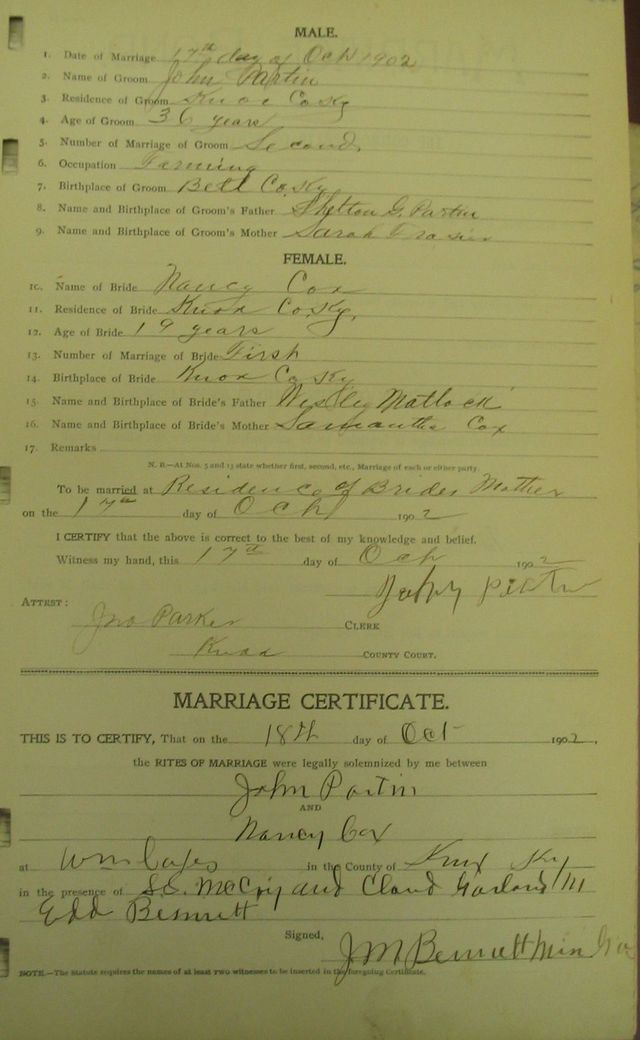 MALE.
1. Date of Marriage 17th day of Oct 1902
2. Name of Groom John Partin
3. Residence of Groom Knox Co Ky
4. Age of Groom 36 years
5. Number of Marriage of Groom Second
6. Occupation Farming
7. Birthplace of Groom Bell Co. Ky
8. Name and Birthplace of Groom's Father Shelton G. Partin
9. Name and Birthplace of Groom's Mother Sarah Frasier
FEMALE.
10. Name of Bride Nancy Cox
11. Residence of Bride Knox Co. Ky.
12. Age of Bride 19 years
13. Number of Marriage of Bride First
14. Birthplace of Bride Knox Co Ky
15. Name and Birthplace of Bride's Father Westley Matlock
16. Name and Birthplace of Bride's Mother Samantha Cox
17. Remarks
N. B.—At Nos. 5 and 13 state whether first, second, etc., Marriage of each or either party.
To be married at Residence of Brides Mother
on the 17th day of Oct 1902
I CERTIFY that the above is correct to the best of my knowledge and belief.
Witness my hand, this 17th day of Oct 1902
John Partin
ATTEST:
Jno Parker CLERK
Knox COUNTY COURT.
MARRIAGE CERTIFICATE.
THIS IS TO CERTIFY, That on the 18th day of Oct 1902,
the RITES OF MARRIAGE were legally solemnized by me between
John Partin
AND
Nancy Cox
at Wm in the County of Knox Ky
in the presence of S.S. McCoy and Claud Garland
Edd Bennett
Signed, J M Bennett Min
NOTE.—The Statute requires the names of at least TWO witnesses to be inserted in the foregoing Certificate.